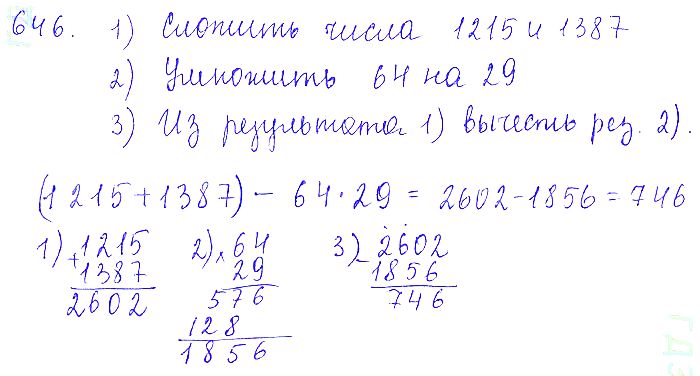 646. 1) Сложить числа 1215 и 1387
2) Умножить 64 на 29
3) Из результата 1) вычесть рез. 2).
(1215+1387) - 64·29 = 2602-1856 = 746
1) +1215 2) ×64 3) -2602
1387 29 1856
2602 576 746
128
1856
ГДЗ